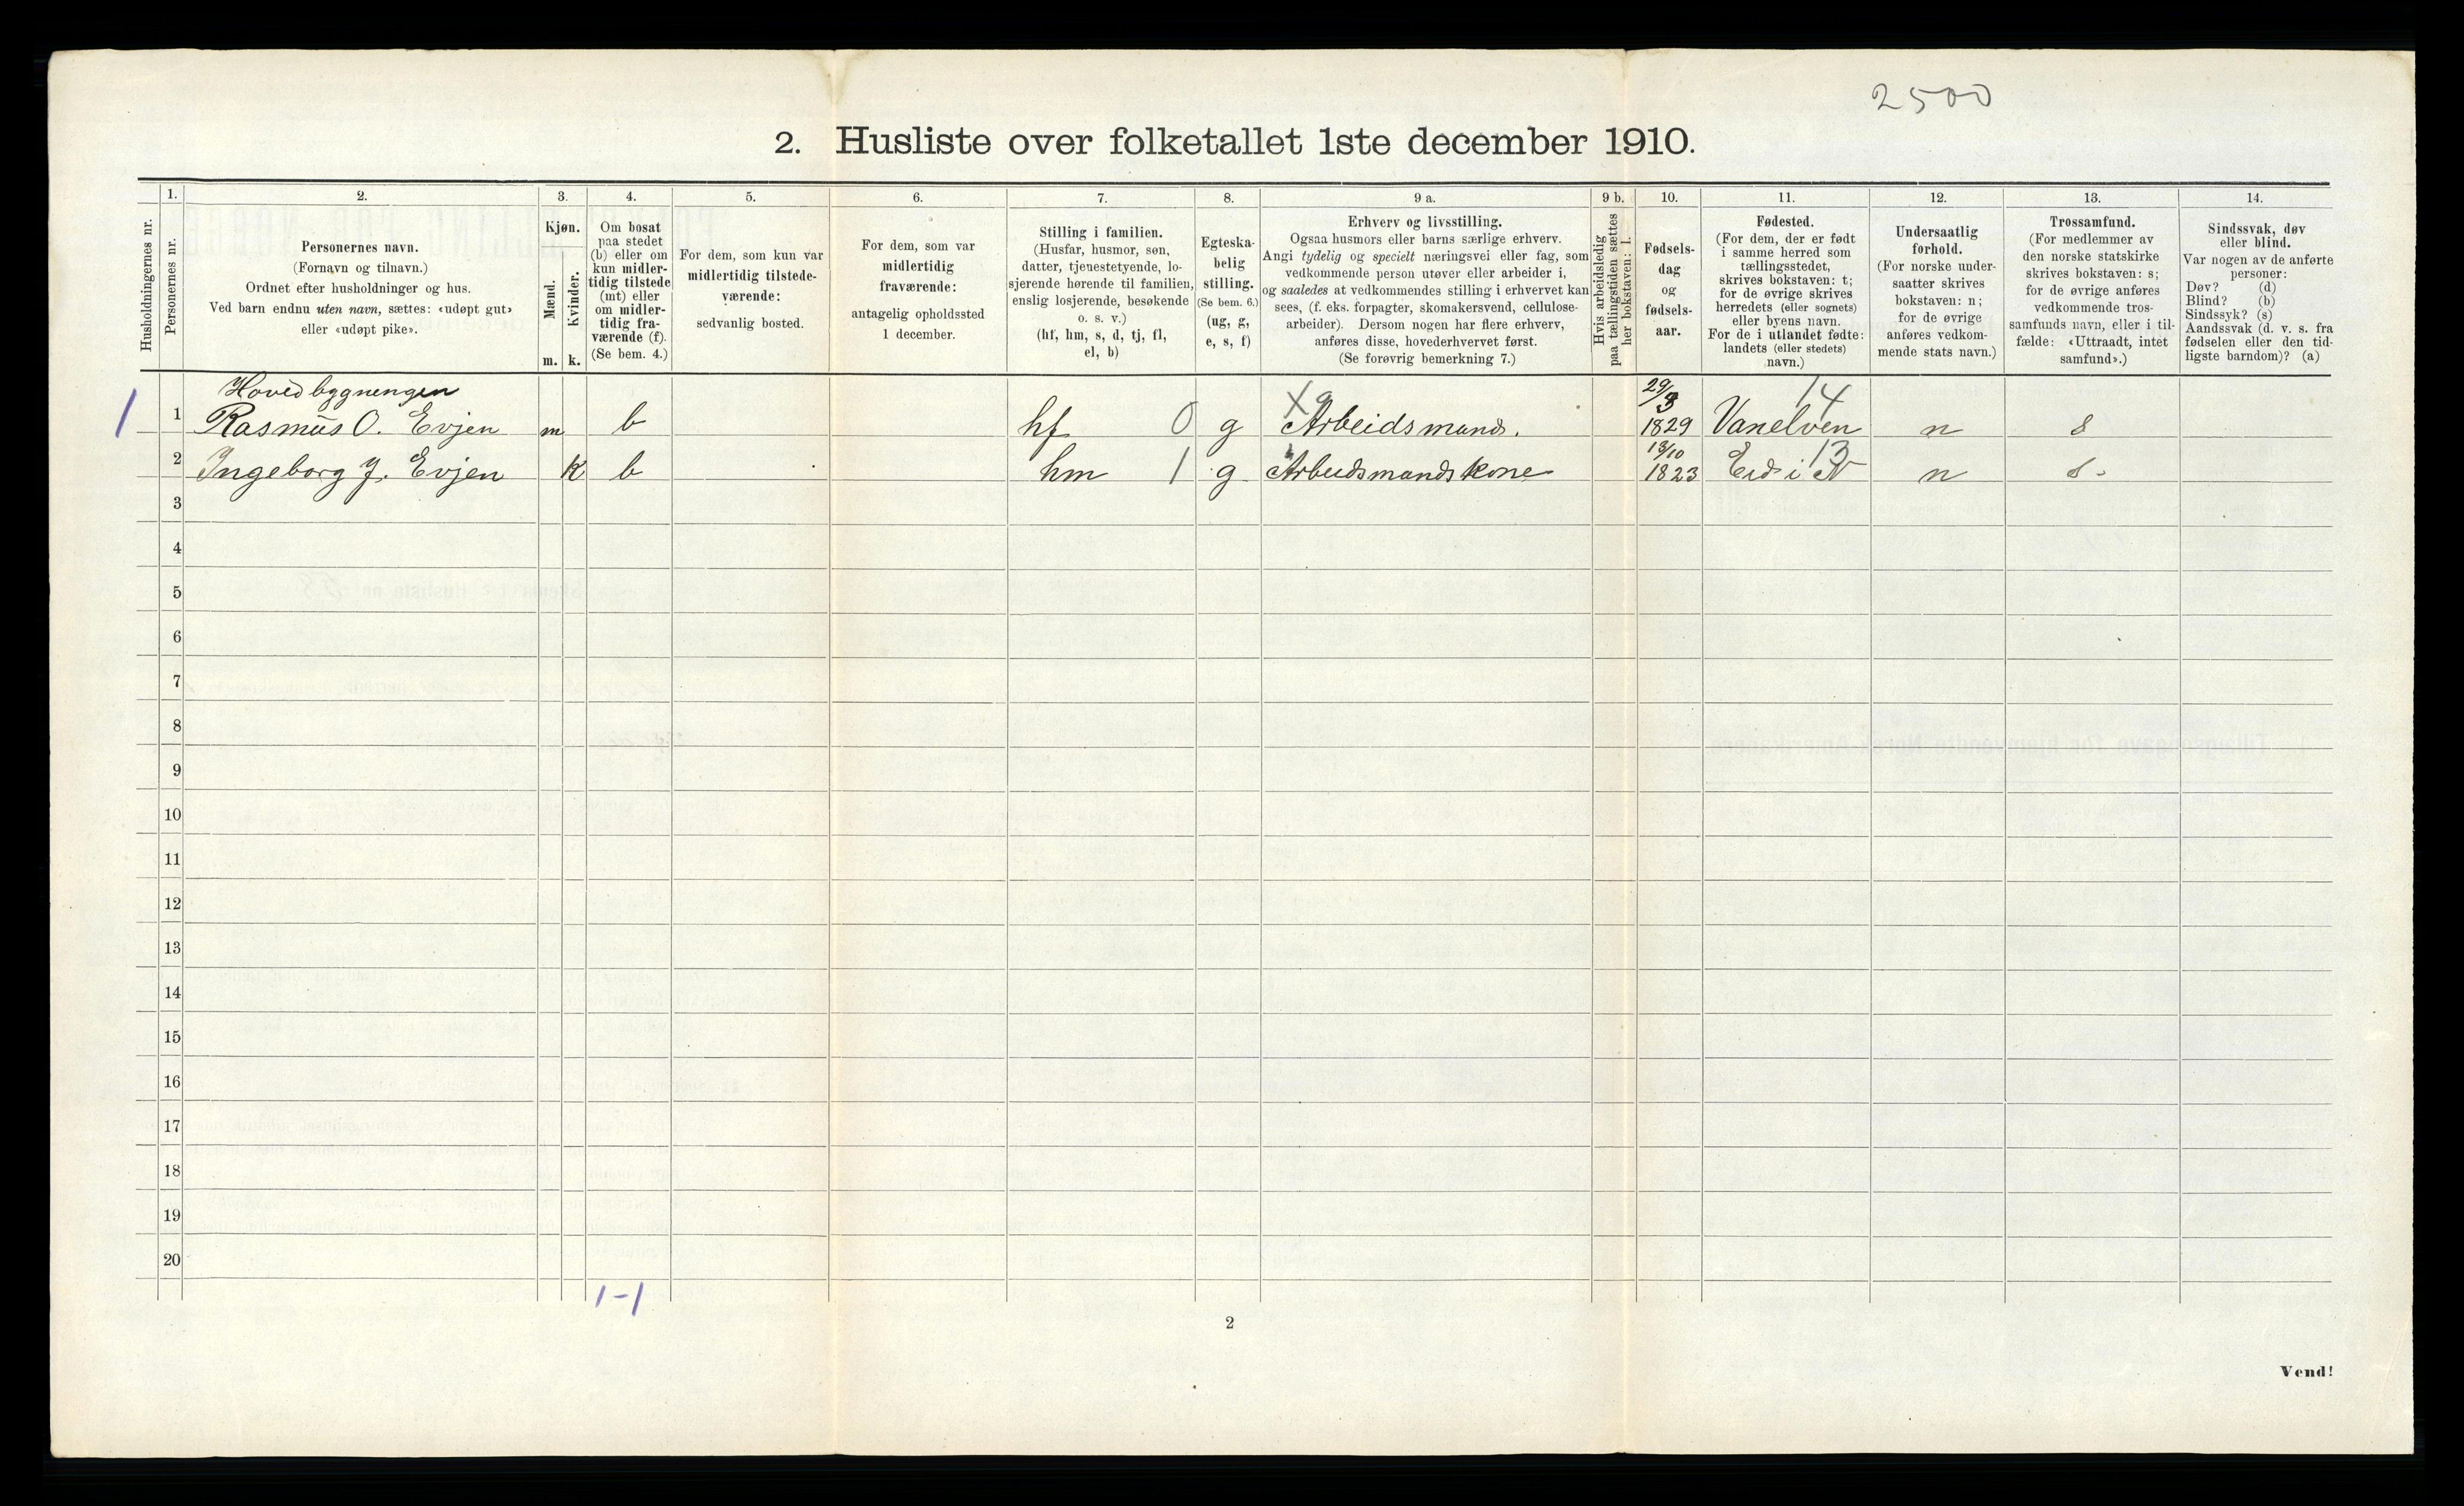 2500
2. Husliste over folketallet 1ste december 1910.
Husholdningernes nr.
1.
Personernes nr.
2.
Personernes navn.
(Fornavn og tilnavn.)
Ordnet efter husholdninger og hus.
Ved barn endnu uten navn, sættes: «udøpt gut»
eller «udøpt pike».
3.
Kjøn.
Mænd.
Kvinder.
m.
k.
4.
Om bosat
paa stedet
(b) eller om
kun midler-
tidig tilstede
(mt) eller
om midler-
tidig fra-
værende (f).
(Se bem. 4.)
5.
For dem, som kun var
midlertidig tilstede-
værende:
sedvanlig bosted.
6.
For dem, som var
midlertidig
fraværende:
antagelig opholdssted
1 december.
7.
Stilling i familien.
(Husfar, husmor, søn,
datter, tjenestetyende, lo-
sjerende hørende til familien,
enslig losjerende, besøkende
o. s. v.)
(hf, hm, s, d, tj, fl,
el, b)
8.
Egteska-
belig
stilling.
(Se bem. 6.)
(ug, g,
e, s, f)
9 a.
Erhverv og livsstilling.
Ogsaa husmors eller barns særlige erhverv.
Angi tydelig og specielt næringsvei eller fag, som
vedkommende person utøver eller arbeider i,
og saaledes at vedkommendes stilling i erhvervet kan
sees, (f. eks. forpagter, skomakersvend, cellulose-
arbeider). Dersom nogen har flere erhverv,
anføres disse, hovederhvervet først.
(Se forøvrig bemerkning 7.)
9 b.
Hvis arbeidsledig
paa tællingstiden sættes
her bokstaven: l.
10.
Fødsels-
dag
og
fødsels-
aar.
11.
Fødested.
(For dem, der er født
i samme herred som
tællingsstedet,
skrives bokstaven: t;
for de øvrige skrives
herredets (eller sognets)
eller byens navn.
For de i utlandet fødte:
landets (eller stedets)
navn.)
12.
Undersaatlig
forhold.
(For norske under-
saatter skrives
bokstaven: n;
for de øvrige
anføres vedkom-
mende stats navn.)
13.
Trossamfund.
(For medlemmer av
den norske statskirke
skrives bokstaven: s;
for de øvrige anføres
vedkommende tros-
samfunds navn, eller i til-
fælde: «Uttraadt, intet
samfund».)
14.
Sindssvak, døv
eller blind.
Var nogen av de anførte
personer:
Døv? (d)
Blind? (b)
Sindssyk? (s)
Aandssvak (d. v. s. fra
fødselen eller den tid-
ligste barndom)? (a)
Hovedbygningen
1 1 Rasmus O. Evjen m b hf 0 g Arbeidsmand. 29/3 1829 Vanelven 14 n s
2 Ingeborg J. Evjen k b hm 1 g Arbeidsmandskone 13/10 1823 Eid i N 13 n s.
3
4
5
6
7
8
9
10
11
12
13
14
15
16
17
18
19
20
1-1
2
Vend!